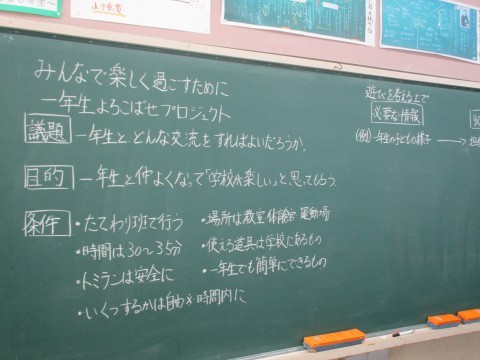 みんなで楽しく過ごすために
一年生よろこばせプロジェクト
議題 一年生と、どんな交流をすればよいだろうか。
目的 一年生と仲よくなって「学校が楽しい」と思ってもらう。
条件 ・たてわり班で行う
・時間は30〜35分
・トミランは安全に
・いくつするかは自由 ※時間内に
・場所は教室 体育館 運動場
・使える道具は学校にあるもの
・一年生でも簡単にできるもの
遊びを考える上で
必要な情報
(例) 一年生の子どもの様子 →